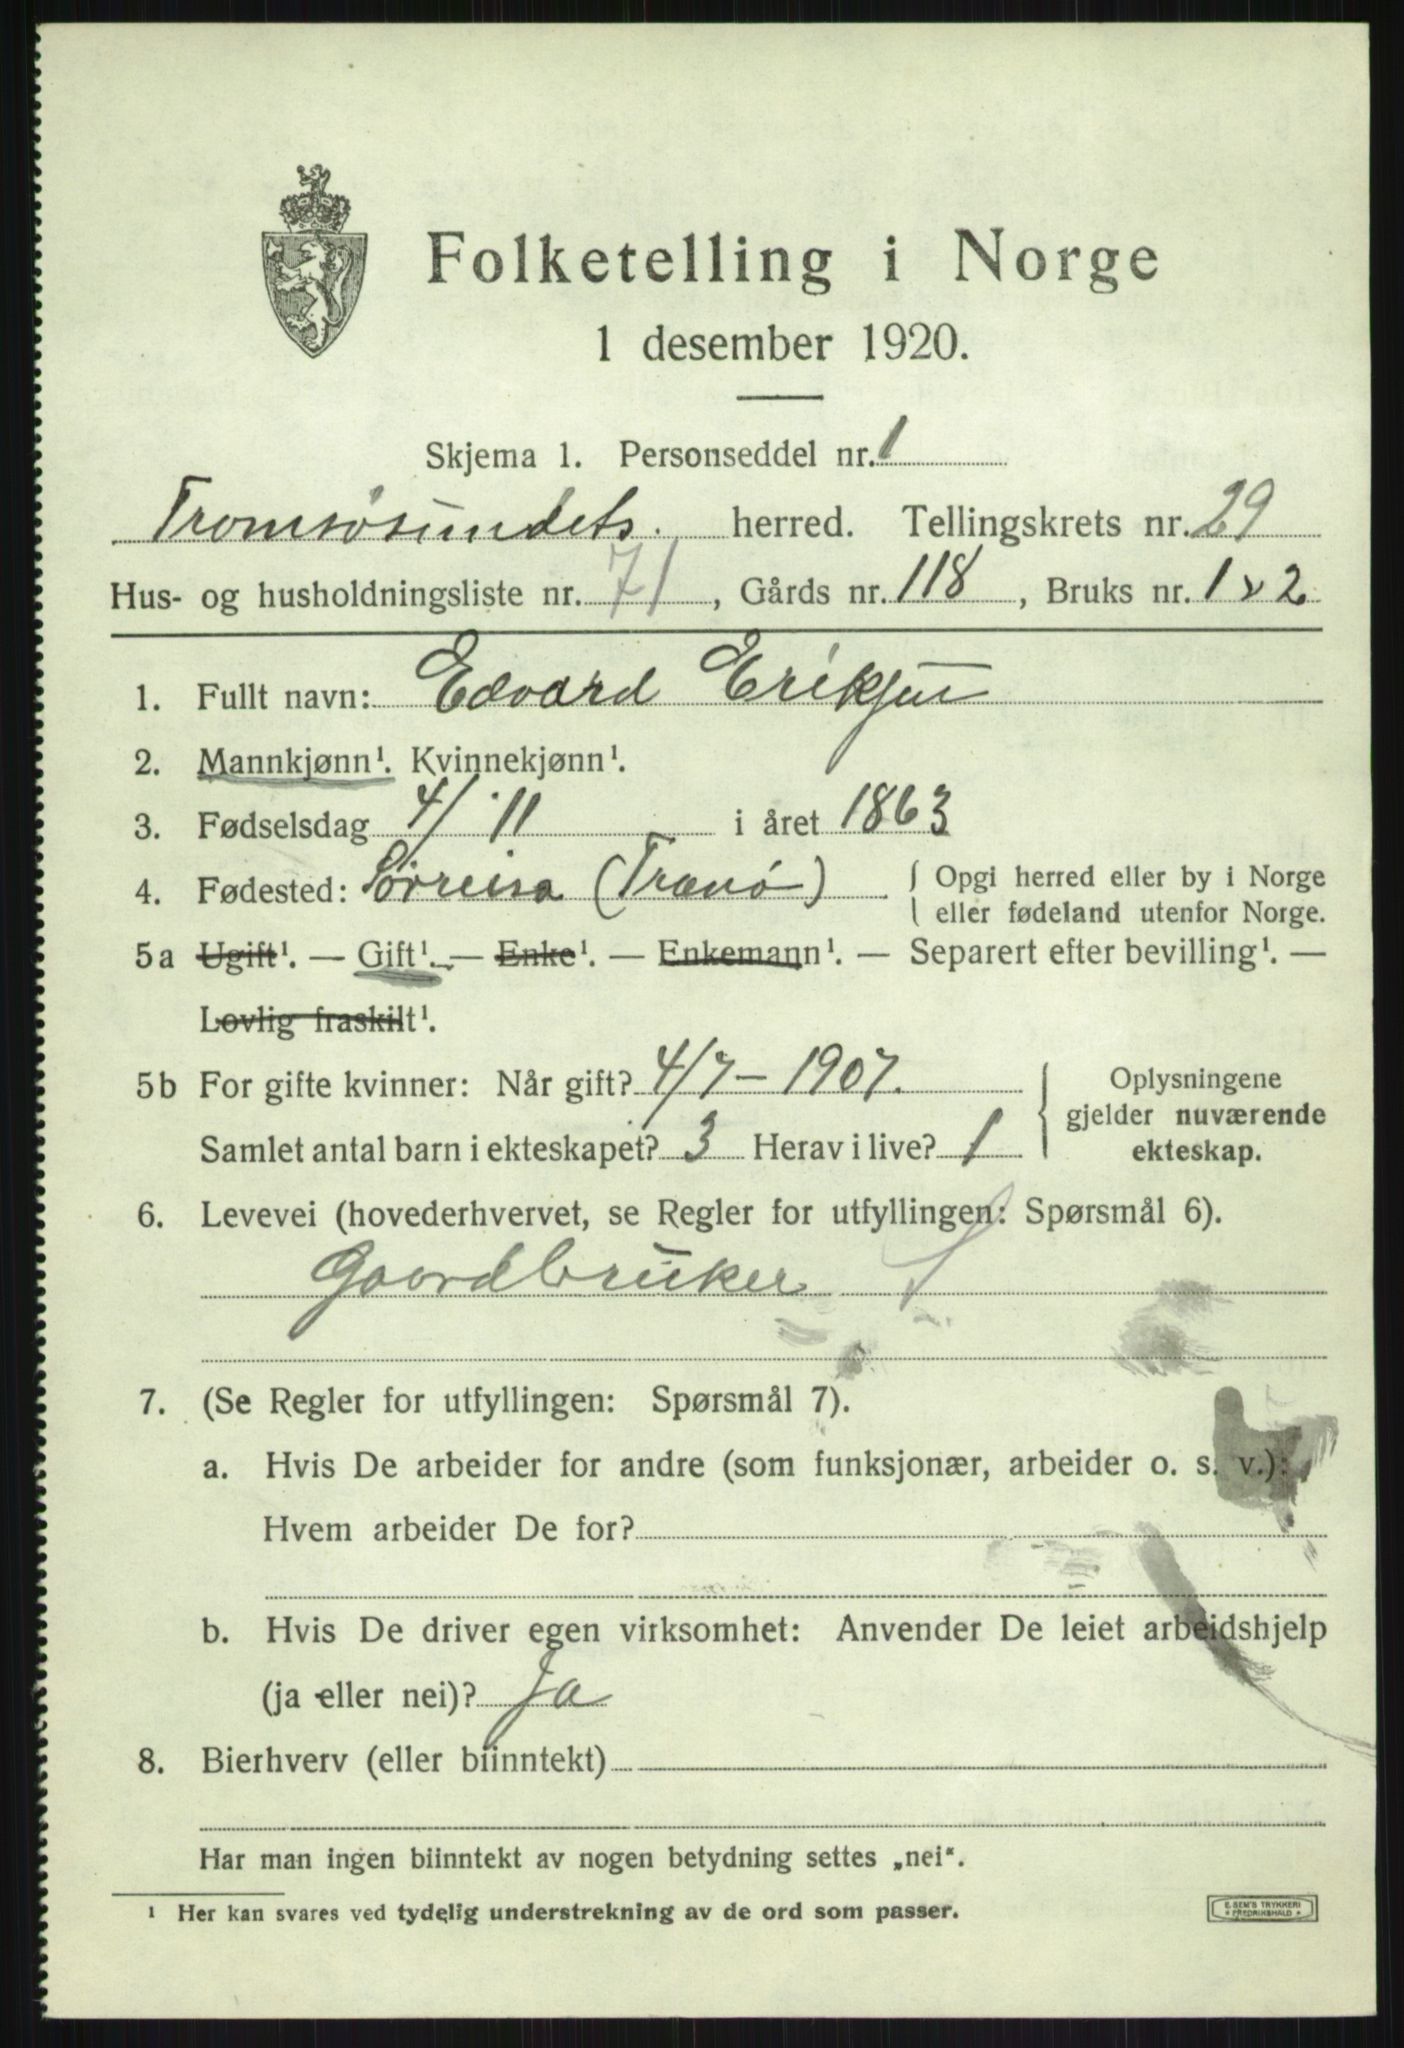 Folketelling i Norge
1 desember 1920.
Skjema 1. Personseddel nr. 1
Tromsøsundets. herred. Tellingskrets nr. 29
Hus- og husholdningsliste nr. 71, Gårds nr. 118, Bruks nr. 1 & 2
1. Fullt navn: Edvard Eriksen
2. Mannkjønn¹. Kvinnekjønn¹.
3. Fødselsdag 4/11 i året 1863
4. Fødested: Sørreisa (Tranø) { Opgi herred eller by i Norge
eller fødeland utenfor Norge.
5a Ugift¹. — Gift¹. — Enke¹. — Enkemann¹. — Separert efter bevilling¹. —
Lovlig fraskilt¹.
5b For gifte kvinner: Når gift? 4/7 – 1907. { Oplysningene
gjelder nuværende
Samlet antal barn i ekteskapet? 3 Herav i live? 1 ekteskap.
6. Levevei (hovederhvervet, se Regler for utfyllingen: Spørsmål 6).
Gaardbruker
7. (Se Regler for utfyllingen: Spørsmål 7).
a. Hvis De arbeider for andre (som funksjonær, arbeider o. s. v.):
Hvem arbeider De for?
b. Hvis De driver egen virksomhet: Anvender De leiet arbeidshjelp
(ja eller nei)? Ja
8. Bierhverv (eller biinntekt)
Har man ingen biinntekt av nogen betydning settes „nei“.
¹ Her kan svares ved tydelig understrekning av de ord som passer.
E. SEM'S TRYKKERI
* FREDRIKSHALD *